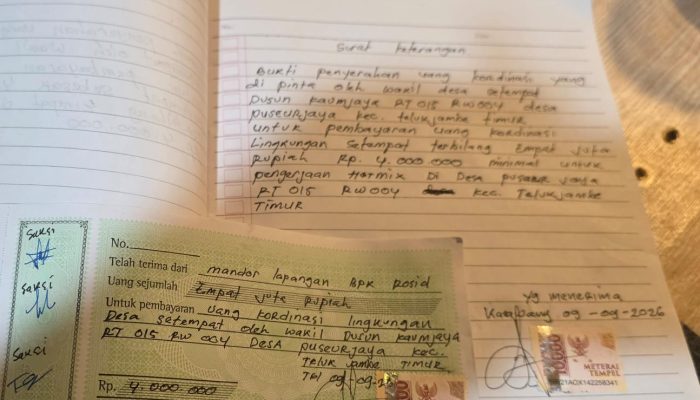 Surat Keterangan
Bukti penyerahan uang kordinasi yang
di pinta oleh wakil desa setempat
Dusun kaumjaya RT 015 RW 004 desa
puseurjaya kec. telukjambe timur
untuk pembayaran uang kordinasi
Lingkungan setempat terbilang Empat juta
rupiah Rp. 4.000.000 minimal untuk
pengerjaan Hotmix Di Desa puseur jaya
RT 015 RW 004 kec. Telukjambe
Timur
yg menerima
Karawang 09-09-2026
METERAI
TEMPEL
21ACIX142258341
saksi
saksi
saksi
No.
Telah terima dari mandor lapangan BPK Rosid
Uang sejumlah Empat jute rupiah
Untuk pembayaran uang kordinasi lingkungan
Desa setempat oleh wakil Dusun kaumjaya
RT 015 RW 004 Desa puseurjaya kec.
Teluk jambe Timur
Tgl 09-09-26
Rp. 4.000.000